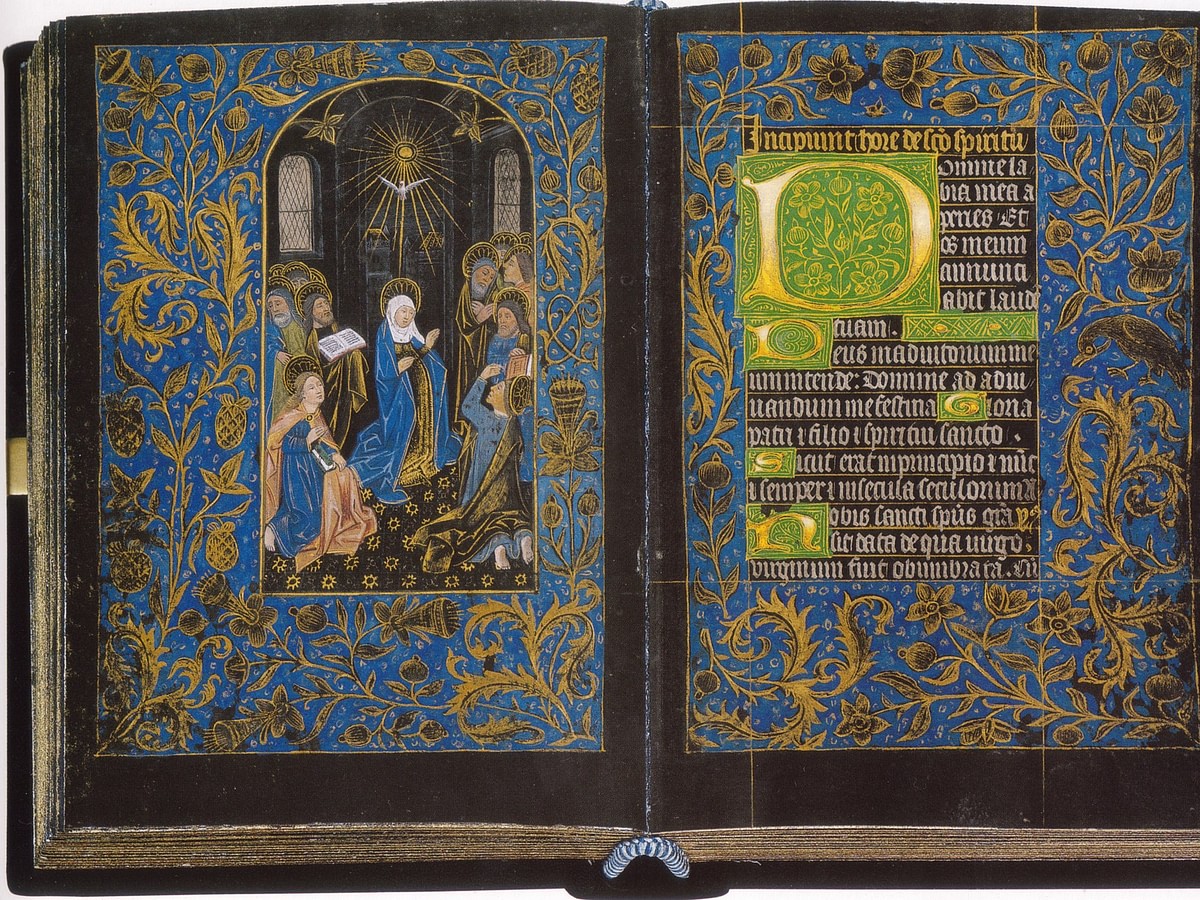 Incipiunt hore de sco spiritu
Domine la
bia mea a
peries Et
os meum
annunci
abit laud
tuam.
Deus in adiutorium me
um intende: Domine ad adiu
uandum me festina Gloria
patri ⁊ filio ⁊ spiritui sancto .
Sicut erat in principio ⁊ nuc
⁊ semper ⁊ in secula seculorum A
Nobis sancti spus gra
sit data de qua uirgo
virginum fuit obumbrata. Cu